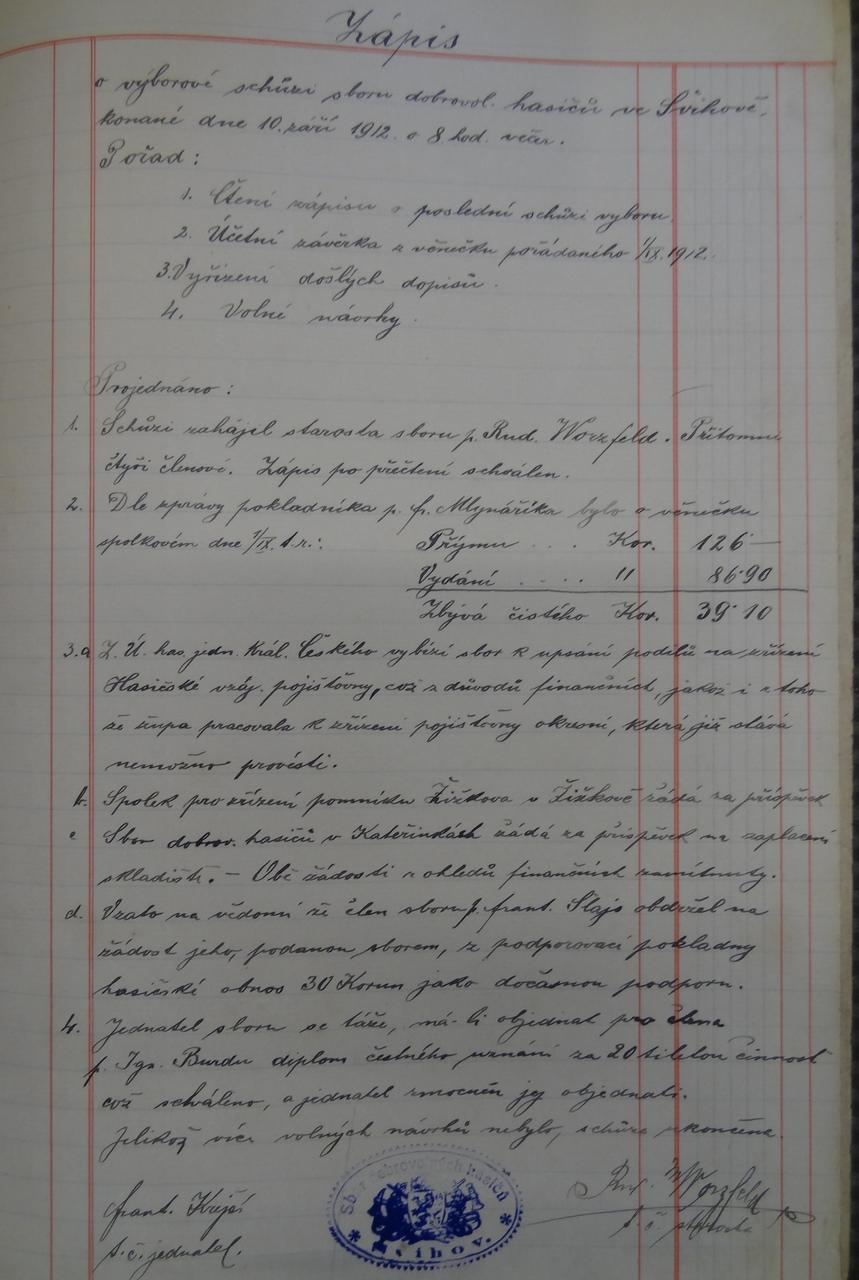 Zápis
o výborové schůzi sboru dobrovol. hasičů ve Švihově,
konané dne 10. září 1912 o 8 hod. večer.
Pořad:
1. Čtení zápisu o poslední schůzi výboru
2. Účetní závěrka z věnečku pořádaného 1/IX. 1912.
3. Vyřízení došlých dopisů.
4. Volné návrhy.
Projednáno:
1. Schůzi zahájil starosta sboru p. Rud. Worzfeld. Přítomni
čtyři členové. Zápis po přečtení schválen.
2. Dle zprávy pokladníka p. fr. Mlynaříka bylo o věnečku
spolkovém dne 1/IX. t.r.: Příjmu . . . . Kor. 126 —
Vydání . . . . " 86·90
Zbývá čistého Kor. 39·10
3.a Z. Ú. has. jedn. Král. Českého vybízí sbor k upsání podílů na zřízení
Hasičské vzáj. pojišťovny, což z důvodů finančních, jakož i z toho
že župa pracovala k zřízení pojišťovny okresní, která již stává
nemožno provésti.
b. Spolek pro zřízení pomníku Žižkova v Žižkově žádá za příspěvek
c Sbor dobrov. hasičů v Kateřinkách žádá za příspěvek na zaplacení
skladiště. — Obě žádosti z ohledů finančních zamítnuty.
d. Vzato na vědomí že člen sboru p. frant. Šlajs obdržel na
žádost jeho, podanou sborem, z podporovací pokladny
hasičské obnos 30 Korun jako dočasnou podporu.
4. Jednatel sboru se táže, má-li objednat pro člena
p. Ign. Burdu diplom čestného uznání za 20 tiletou činnost
což schváleno, a jednatel zmocněn jej objednati.
Jelikož více volných návrhů nebylo, schůze ukončena.
frant. Krejčí
t. č. jednatel.
Sbor dobrovolných hasičů
Švihov.
Rud. Worzfeld
t. č. starosta